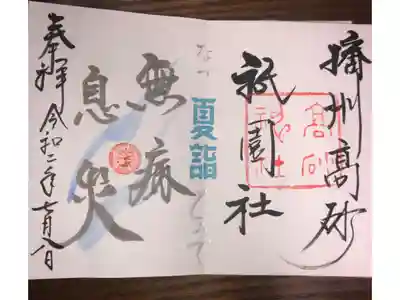 播州高砂
祇園社
高砂
神社
なつ
夏詣
とので
無病
息災
奉拝 令和二年七月八日